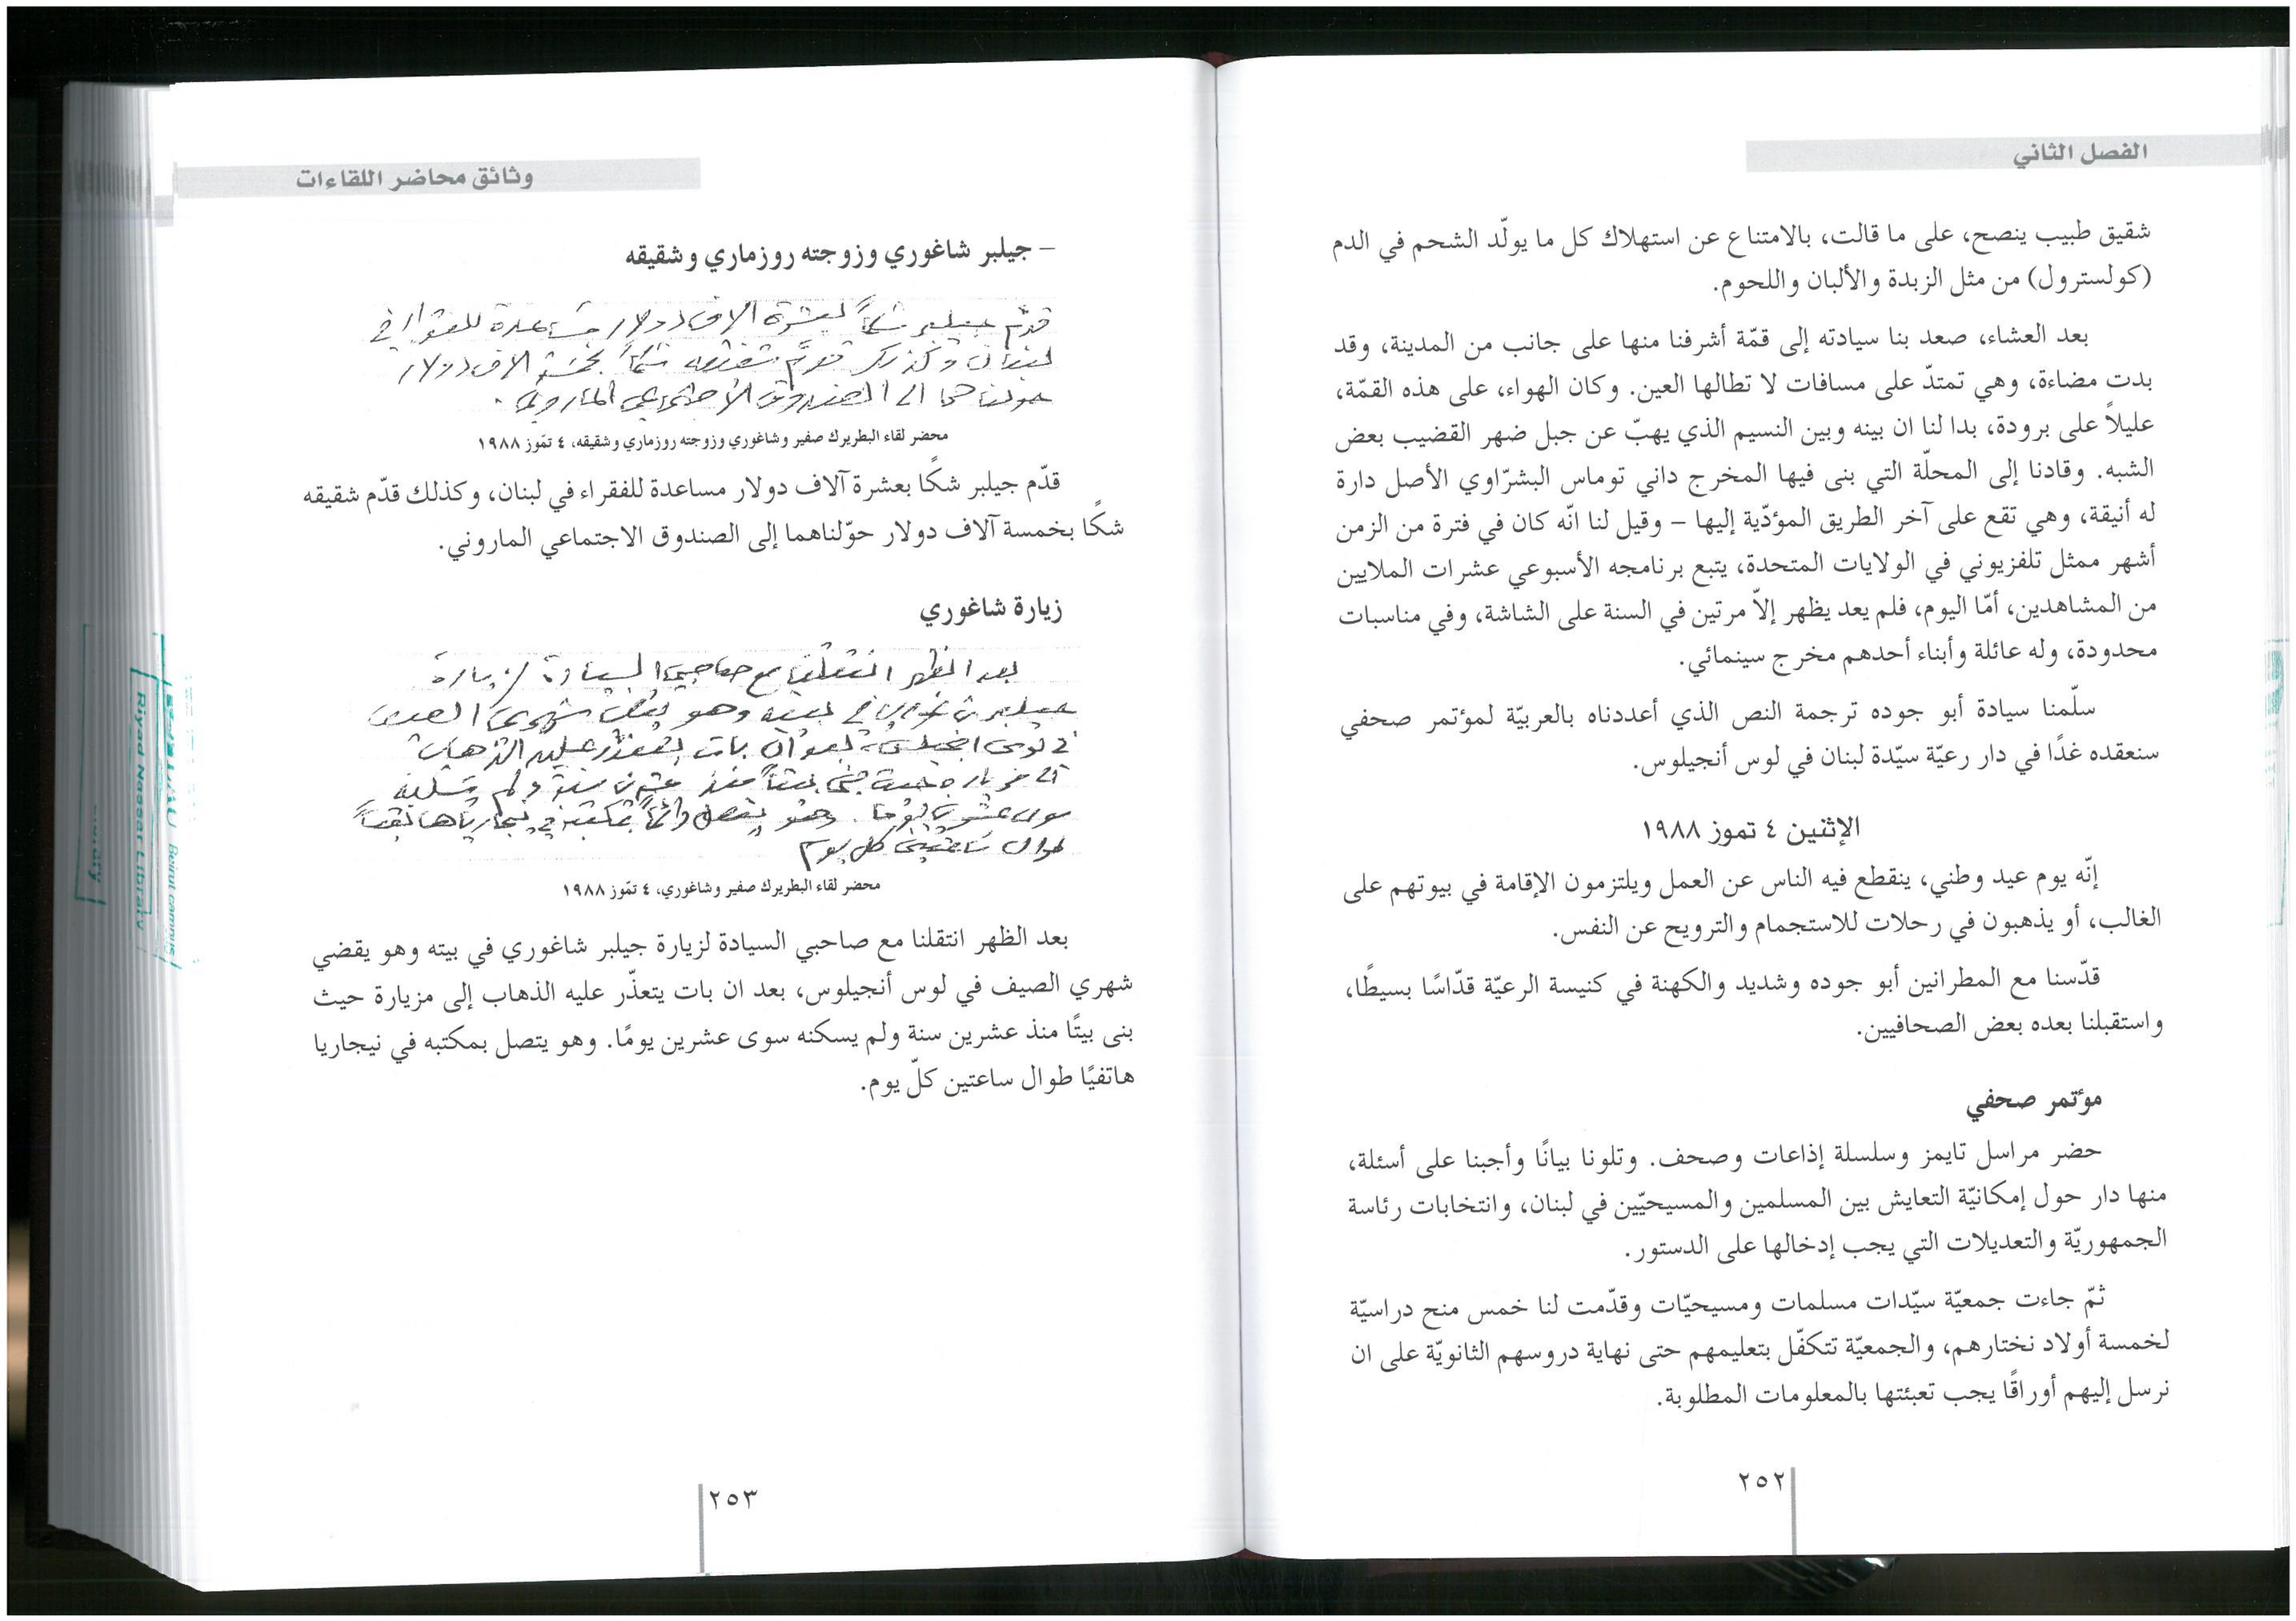 الفصل الثاني
شقيق طبيب ينصح، على ما قالت، بالامتناع عن استهلاك كل ما يولّد الشحم في الدم
(كولسترول) من مثل الزبدة والألبان واللحوم.
بعد العشاء، صعد بنا سيادته إلى قمّة أشرفنا منها على جانب من المدينة، وقد
بدت مضاءة، وهي تمتدّ على مسافات لا تطالها العين. وكان الهواء، على هذه القمّة،
عليلاً على برودة، بدا لنا ان بينه وبين النسيم الذي يهبّ عن جبل ضهر القضيب بعض
الشبه. وقادنا إلى المحلّة التي بنى فيها المخرج داني توماس البشرّاوي الأصل دارة
له أنيقة، وهي تقع على آخر الطريق المؤدّية إليها – وقيل لنا انّه كان في فترة من الزمن
أشهر ممثل تلفزيوني في الولايات المتحدة، يتبع برنامجه الأسبوعي عشرات الملايين
من المشاهدين، أمّا اليوم، فلم يعد يظهر إلاّ مرتين في السنة على الشاشة، وفي مناسبات
محدودة، وله عائلة وأبناء أحدهم مخرج سينمائي.
سلّمنا سيادة أبو جوده ترجمة النص الذي أعددناه بالعربيّة لمؤتمر صحفي
سنعقده غدًا في دار رعيّة سيّدة لبنان في لوس أنجيلوس.
الإثنين ٤ تموز ١٩٨٨
إنّه يوم عيد وطني، ينقطع فيه الناس عن العمل ويلتزمون الإقامة في بيوتهم على
الغالب، أو يذهبون في رحلات للاستجمام والترويح عن النفس.
قدّسنا مع المطرانين أبو جوده وشديد والكهنة في كنيسة الرعيّة قدّاسًا بسيطًا،
واستقبلنا بعده بعض الصحافيين.
مؤتمر صحفي
حضر مراسل تايمز وسلسلة إذاعات وصحف. وتلونا بيانًا وأجبنا على أسئلة،
منها دار حول إمكانيّة التعايش بين المسلمين والمسيحيّين في لبنان، وانتخابات رئاسة
الجمهوريّة والتعديلات التي يجب إدخالها على الدستور.
ثمّ جاءت جمعيّة سيّدات مسلمات ومسيحيّات وقدّمت لنا خمس منح دراسيّة
لخمسة أولاد نختارهم، والجمعيّة تتكفّل بتعليمهم حتى نهاية دروسهم الثانويّة على ان
نرسل إليهم أوراقًا يجب تعبئتها بالمعلومات المطلوبة.
٢٥٢
وثائق محاضر اللقاءات
– جيلبر شاغوري وزوجته روزماري وشقيقه
قدّم جيلبر شكاً بعشرة الاف دولار مساعدة للفقراء في
لبنان وكذلك قدّم شقيقه شكاً بخمسة الاف دولار
حولناهما الى الصندوق الاجتماعي الماروني.
محضر لقاء البطريرك صفير وشاغوري وزوجته روزماري وشقيقه، ٤ تمّوز ١٩٨٨
قدّم جيلبر شكًا بعشرة آلاف دولار مساعدة للفقراء في لبنان، وكذلك قدّم شقيقه
شكًا بخمسة آلاف دولار حوّلناهما إلى الصندوق الاجتماعي الماروني.
زيارة شاغوري
بعد الظهر انتقلنا مع صاحبي السيادة لزيارة
جيلبر شاغوري في بيته وهو يقضي شهري الصيف
في لوس انجيلوس، بعد ان بات يتعذر عليه الذهاب
الى مزيارة حيث بنى بيتاً منذ عشرين سنة ولم يسكنه
سوى عشرين يوماً. وهو يتصل دائماً بمكتبه في نيجاريا هاتفياً
طوال ساعتين كل يوم
محضر لقاء البطريرك صفير وشاغوري، ٤ تمّوز ١٩٨٨
بعد الظهر انتقلنا مع صاحبي السيادة لزيارة جيلبر شاغوري في بيته وهو يقضي
شهري الصيف في لوس أنجيلوس، بعد ان بات يتعذّر عليه الذهاب إلى مزيارة حيث
بنى بيتًا منذ عشرين سنة ولم يسكنه سوى عشرين يومًا. وهو يتصل بمكتبه في نيجاريا
هاتفيًا طوال ساعتين كلّ يوم.
٢٥٣
Beirut campus
Riyad Nassar Library